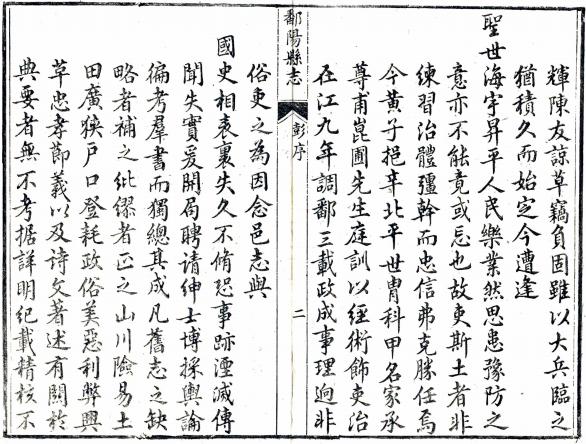 輝陳友諒草竊負固雖以大兵臨之
猶積久而始定今遭逢
聖世海宇昇平人民樂業然思患豫防之
意亦不能竟或忘也故吏斯土者非
練習治體彊幹而忠信弗克勝任焉
今黃子挹辛北平世胄科甲名家承
尊甫崑圃先生庭訓以經術飾吏治
在江九年調鄱三載政成事理迥非
鄱陽縣志
彭序
二
俗吏之為因念邑志與
國史相表裏失久不脩恐事跡湮滅傳
聞失實爰開局聘請紳士博採輿論
徧考羣書而獨總其成凡舊志之缺
略者補之紕繆者正之山川險易土
田廣狹戶口登耗政俗美惡利弊興
革忠孝節義以及詩文著述有關於
典要者無不考据詳明紀載精核不